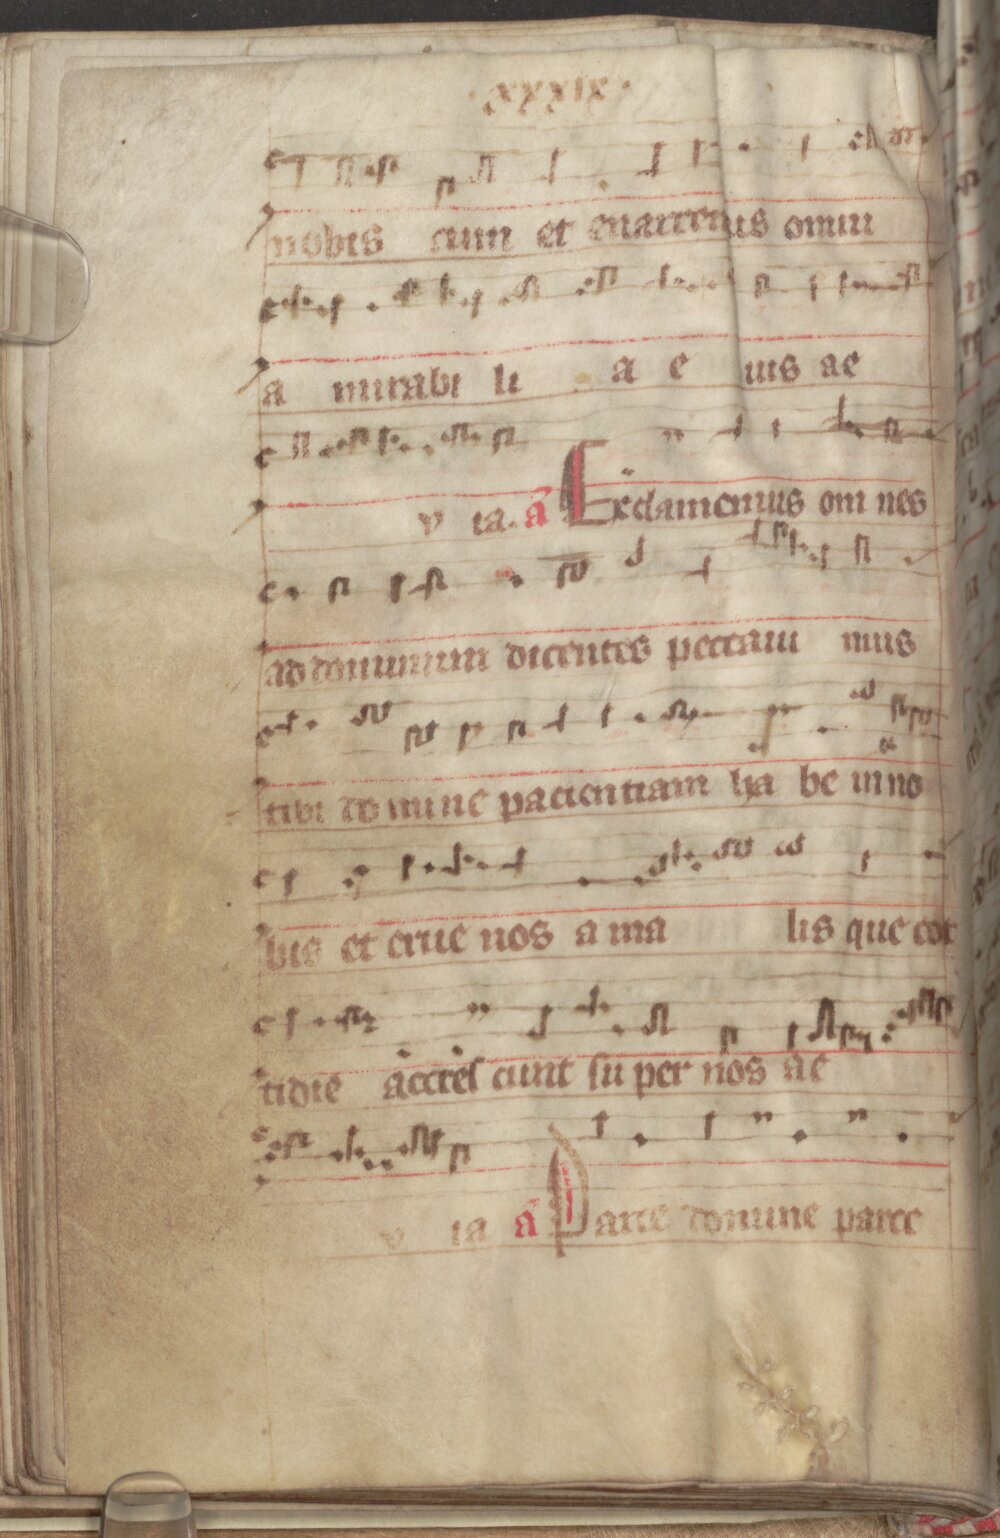 ·xxxix·
nobis cum et enarremus omni
a mirabi li a e ius ae
v ia. a Exclamemus om nes
ad dominum dicentes peccaui mus
tibi do mine pacientiam ha be in no
bis et erue nos a ma lis que cot
tidie accres cunt su per nos ae
v ia a Parce domine parce